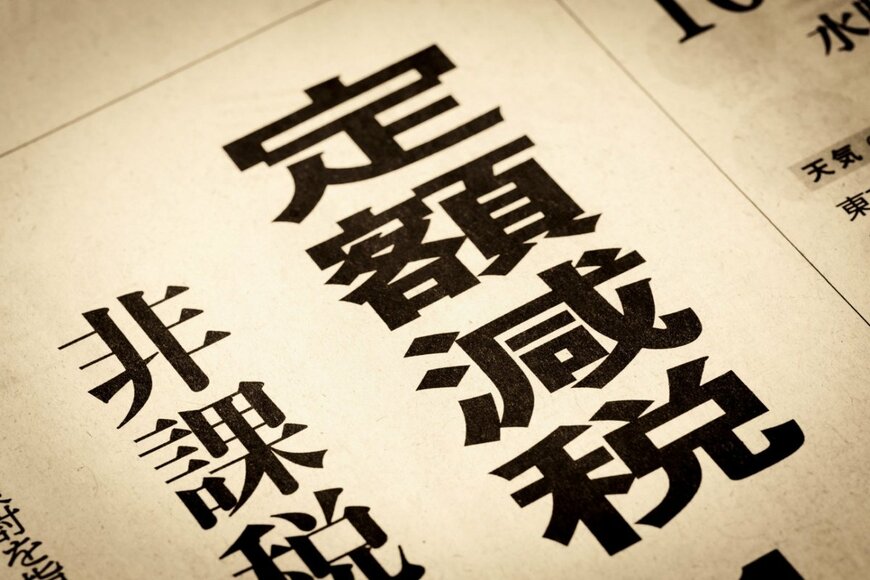 水
天気
東
定額減税
非課税